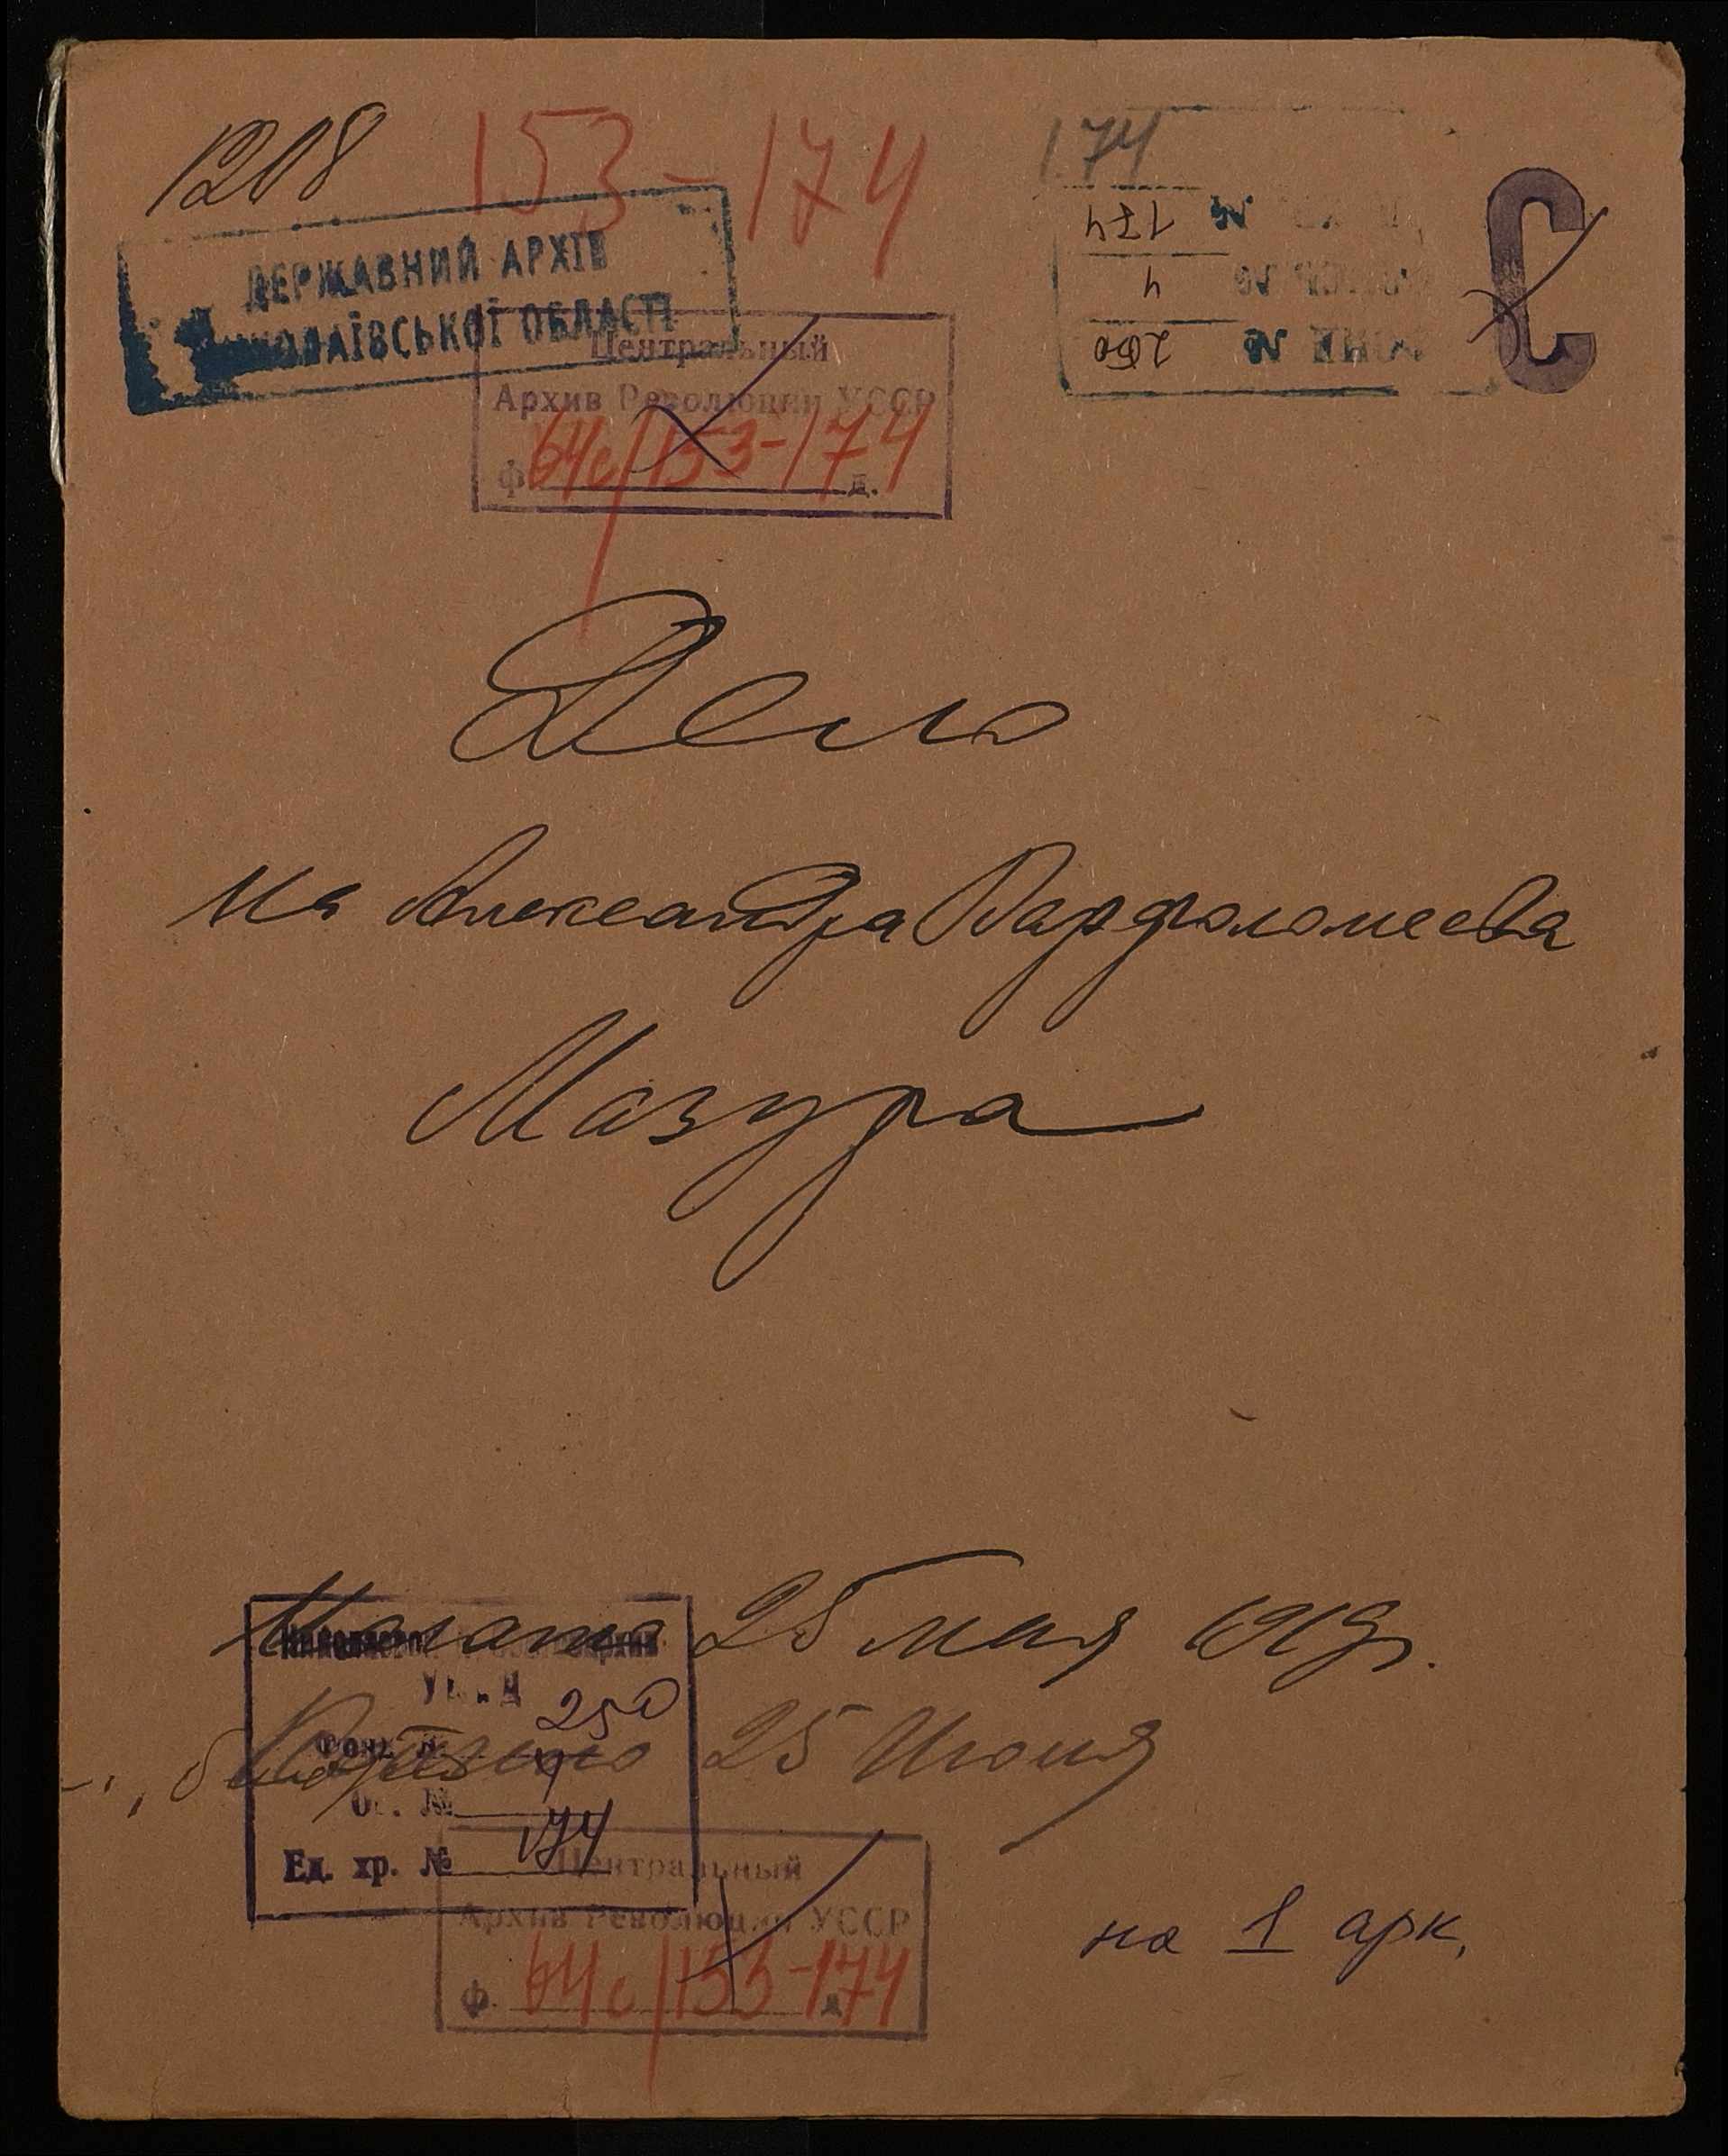 1208
153-174
174
ДЕРЖАВНИЙ АРХІВ
МИКОЛАЇВСЬКОЇ ОБЛАСТІ
174 №
4 №
250 №
С
Центральный
Архив Революции УССР
ф. 64с/153-174 д.
Дело
На Александра Варфоломеева
Мазура
Начато 25 мая 1919г.
25 Июня
Фонд № 250
Оп. № 4
Ед. хр. № 174
Центральный
Архив Революции УССР
ф. 64с/153-174 д.
на 1 арк.